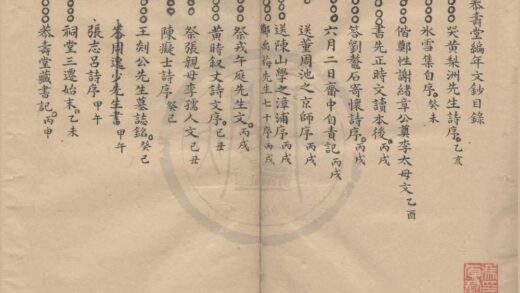 恭壽堂編年文鈔目錄
哭黃梨洲先生詩序。乙亥
氷雪集自序。癸未
偕鄭性謝緒章公奠李太母文乙酉
書先正時文讀本後。丙戌
六月二日齋中自責記丙戌
答劉鰲石寄懷詩序。丙戌
送董周池之京師序丙戌
送陳山學之漳浦序丙戌
鄭禹梅先生七十序丙戌
祭戎午庭先生文。丙戌
黃時叙丈詩文序。己丑
祭張親母李孺人文己丑
陳癡士詩序癸巳
王刻公先生墓誌銘。癸巳
答周遠少先生書甲午
張志呂詩序甲午
祠堂三遷始末。乙未
恭壽堂藏書記。丙申